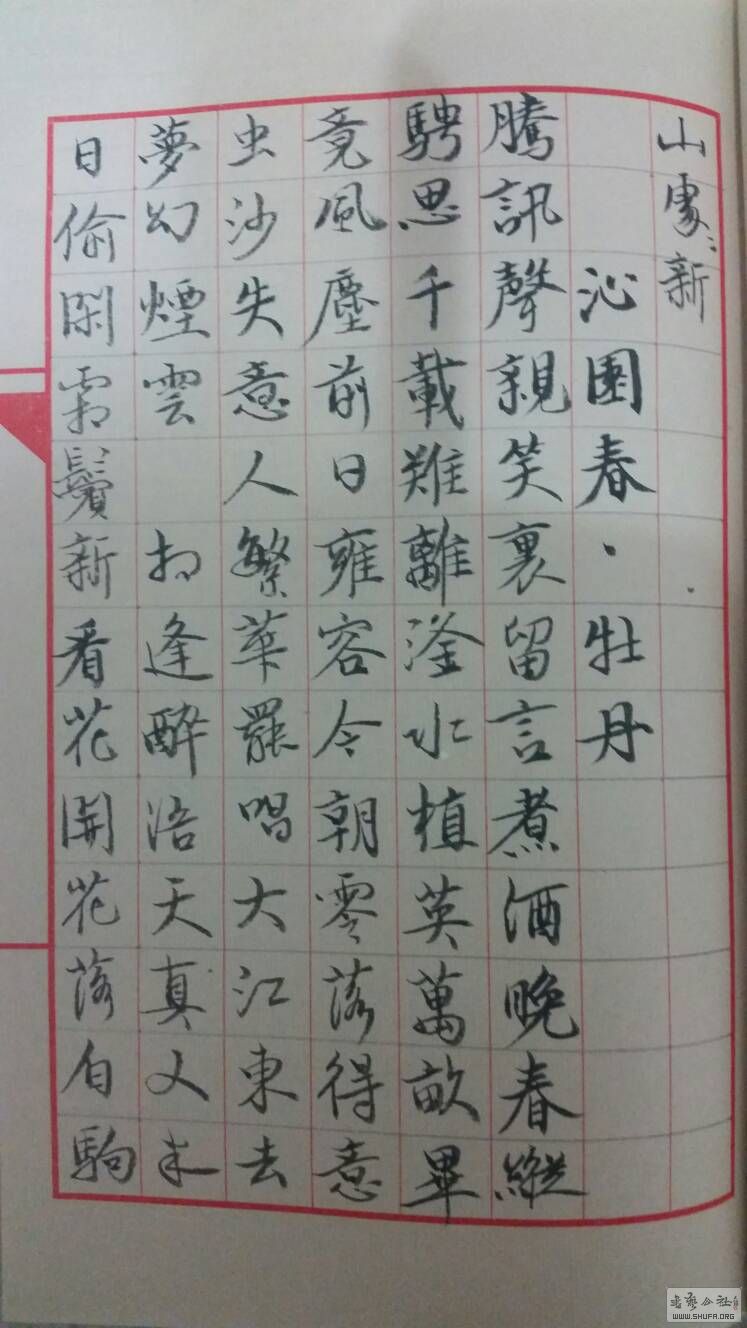 山處〻新
沁園春·牡丹
騰訊聲親笑裏留言煮酒晚春縱
騁思千載難離滏水植英萬畝畢
竟風塵前日雍容今朝零落得意
虫沙失意人繁華罷唱大江東去
夢幻煙雲 相逢醉語天真又半
日偷閑霜鬢新看花開花落白駒
書藝公社
WWW.SHUFA.ORG